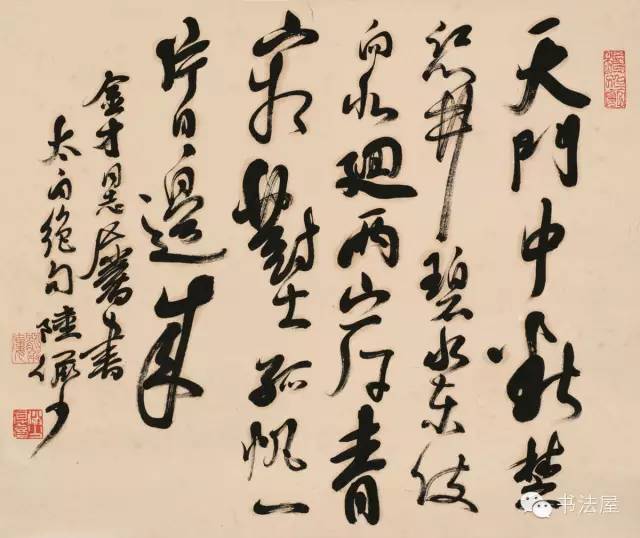 天門中斷楚
江開碧水東流
向北廻兩岸青
山相對出孤帆一
片日邊來
金才同志屬書
太白絕句陸儼少
书法屋